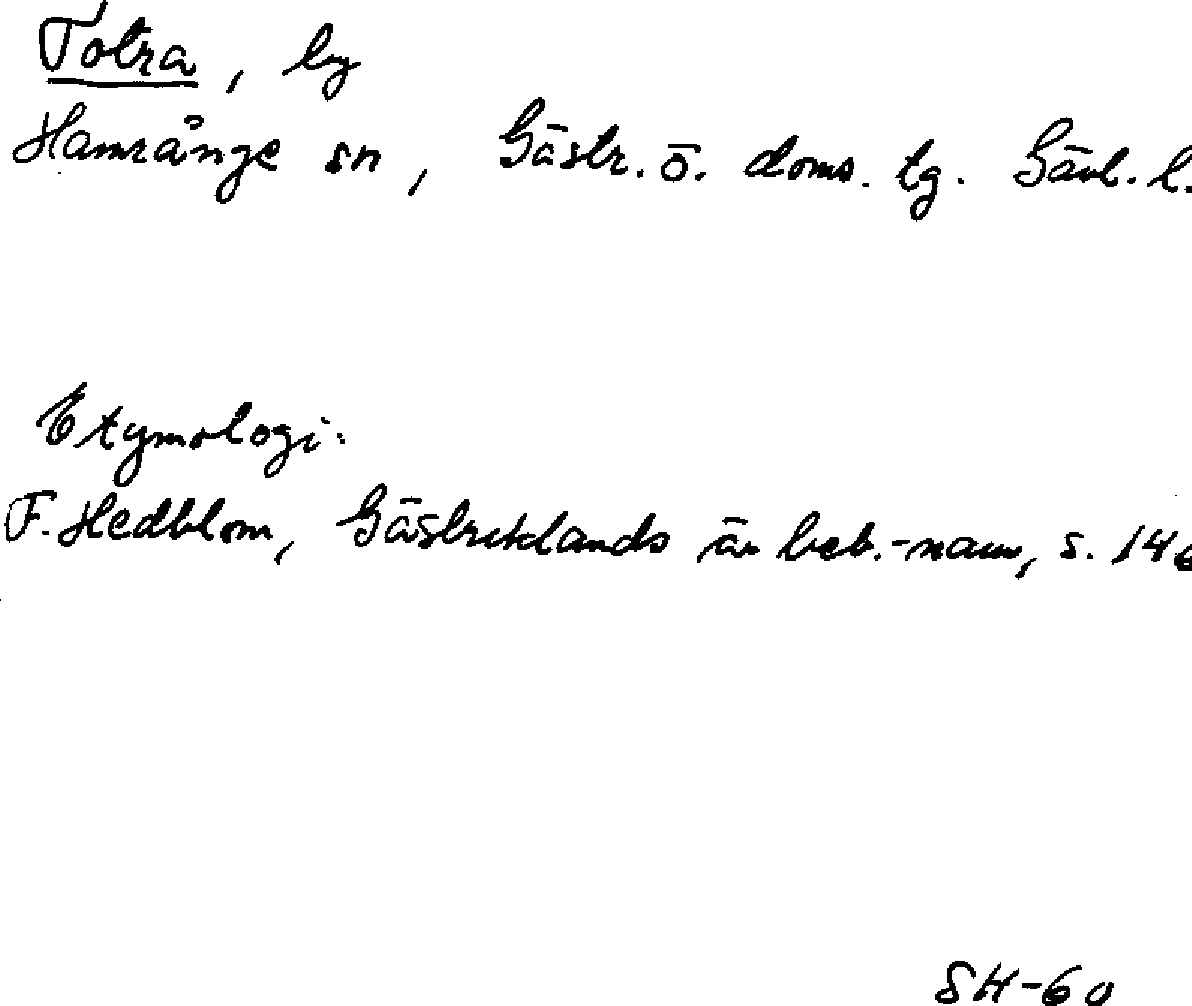 Totra, by
Hamrånge sn, Gästr. ö. doms. tg. Gävl. l.
Etymologi:
F. Hedblom, Gästriklands ä. beb.-namn, s. 146
SH-60